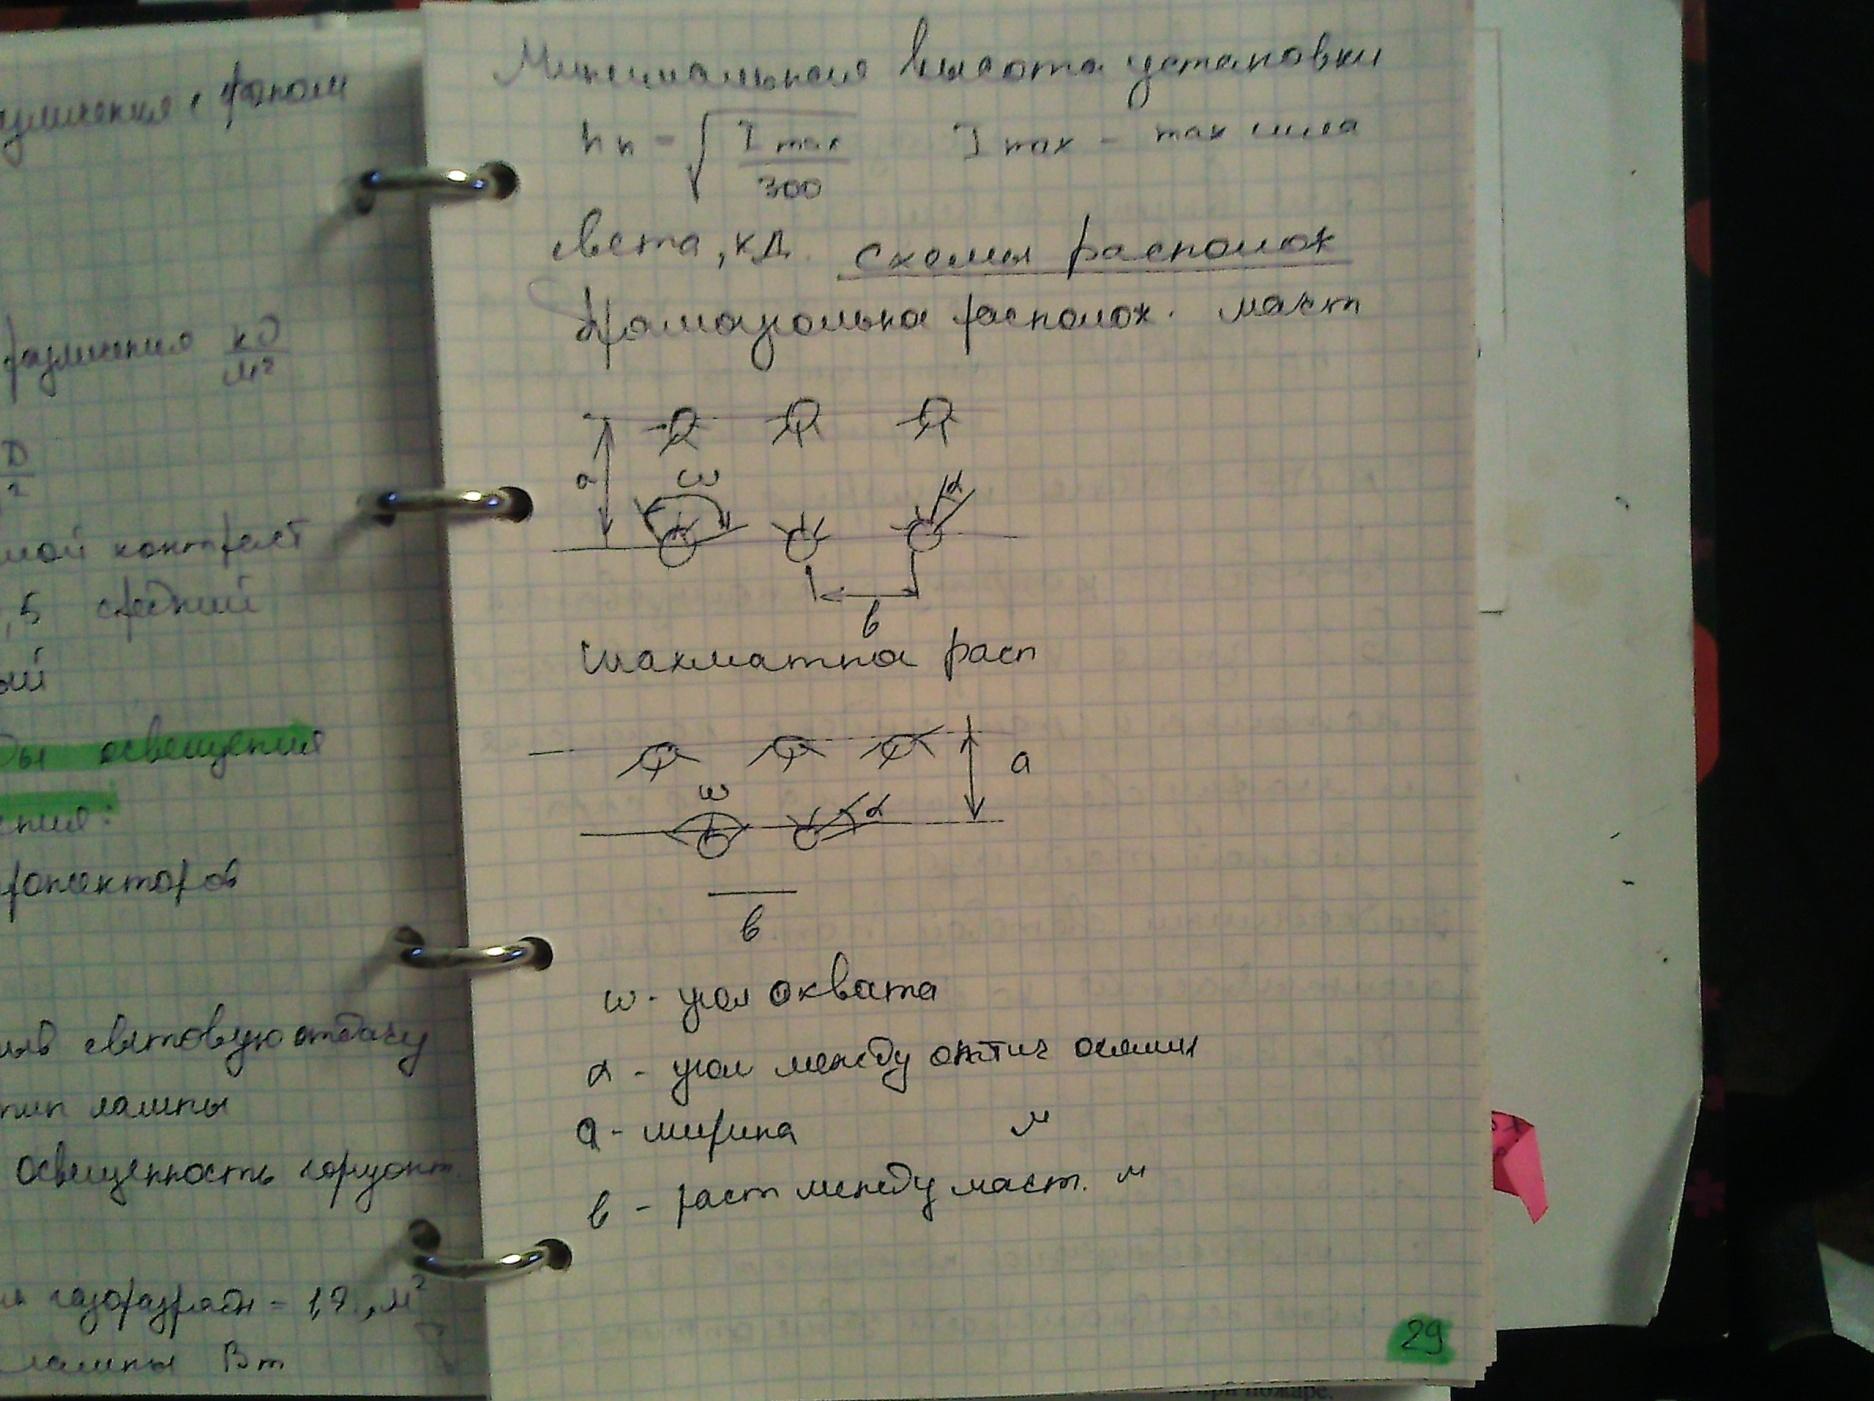 фоном
различения кд
м²
D
2
мой контраст
,5 средний
ый
ды освещения
ения:
прожекторов
световую отдачу
тип лампы
освещенность горизонт.
газоразрядн = 1,7, м²
лампы Вт
Минимальная высота установки
hn = √ I max / 300 I max - max сила
света, кд. схемы располож
Прямоугольна располож. мачт
a
ω
α
в
Шахматна расп
a
ω
α
в
ω - угол охвата
α - угол между оптич осями
a - ширина м
в - раст между маст. м
29
при пожаре.